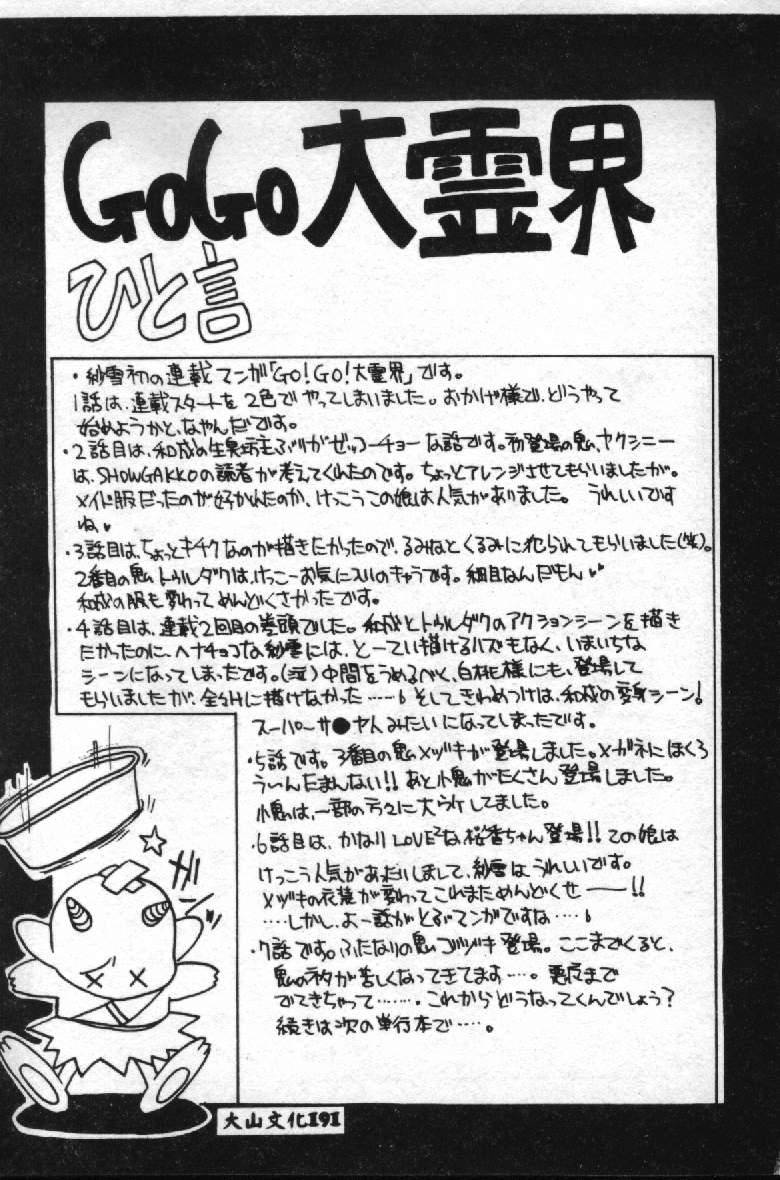 GoGo大霊界
ひと言
・紗雪初の連載マンガ「GO!GO!大霊界」です。
1話は、連載スタートを2色でやってしまいました。おかげ様で、どうやって
始めようかと、なやんだです。
・2話目は、和成の生臭坊主ぶりがゼッコーチョーな話です。初登場の鬼、ヤクシニー
は、SHOWGAKKOの読者が考えてくれたのです。ちょっとアレンジさせてもらいましたが。
メイド服だったのが好かれたのか、けっこうこの娘は人気がありました。うれしいです
ね♥
・3話目は、ちょっとキチクなのが描きたかったので、るみねとくるみに犯られてもらいました(笑)。
2番目の鬼トゥルダクは、けっこーお気に入りのキャラです。細目なんだもん♥♥
和成の服も変わってめんどくさかったです。
・4話目は、連載2回目の巻頭でした。和成とトゥルダクのアクションシーンを描き
たかったのに、ヘナチョコな紗雪には、とーてい描けるハズもなく、いまいちな
シーンになってしまったです。(泣)中間をうめるべく、白桃様にも、登場して
もらいましたが、全然Hに描けなかった……。そしてきわめつけは、和成の変身シーン!
スーパーサ●ヤ人みたいになってしまったです。
・5話です。3番目の鬼メヅキが登場しました。メガネにほくろ
うぃんたまんない!!あと小鬼がたくさん登場しました。
小鬼は、一部の方々に大ウケしてました。
・6話目は、かなりLOVE²な、桜香ちゃん登場!!この娘は
けっこう人気があたいしまして、紗雪はうれしいです。
メヅキの衣装が変わってこれまためんどくせ――!!
……しかし、よー話がとぶマンガですな……。
・7話です。ふたなりの鬼ゴヅキ登場。ここまでくると、
鬼のネタが苦しくなってきてます…。悪魔まで
でてきちゃって………。これからどうなってくんでしょう?
続きは次の単行本で…。
大山文化191